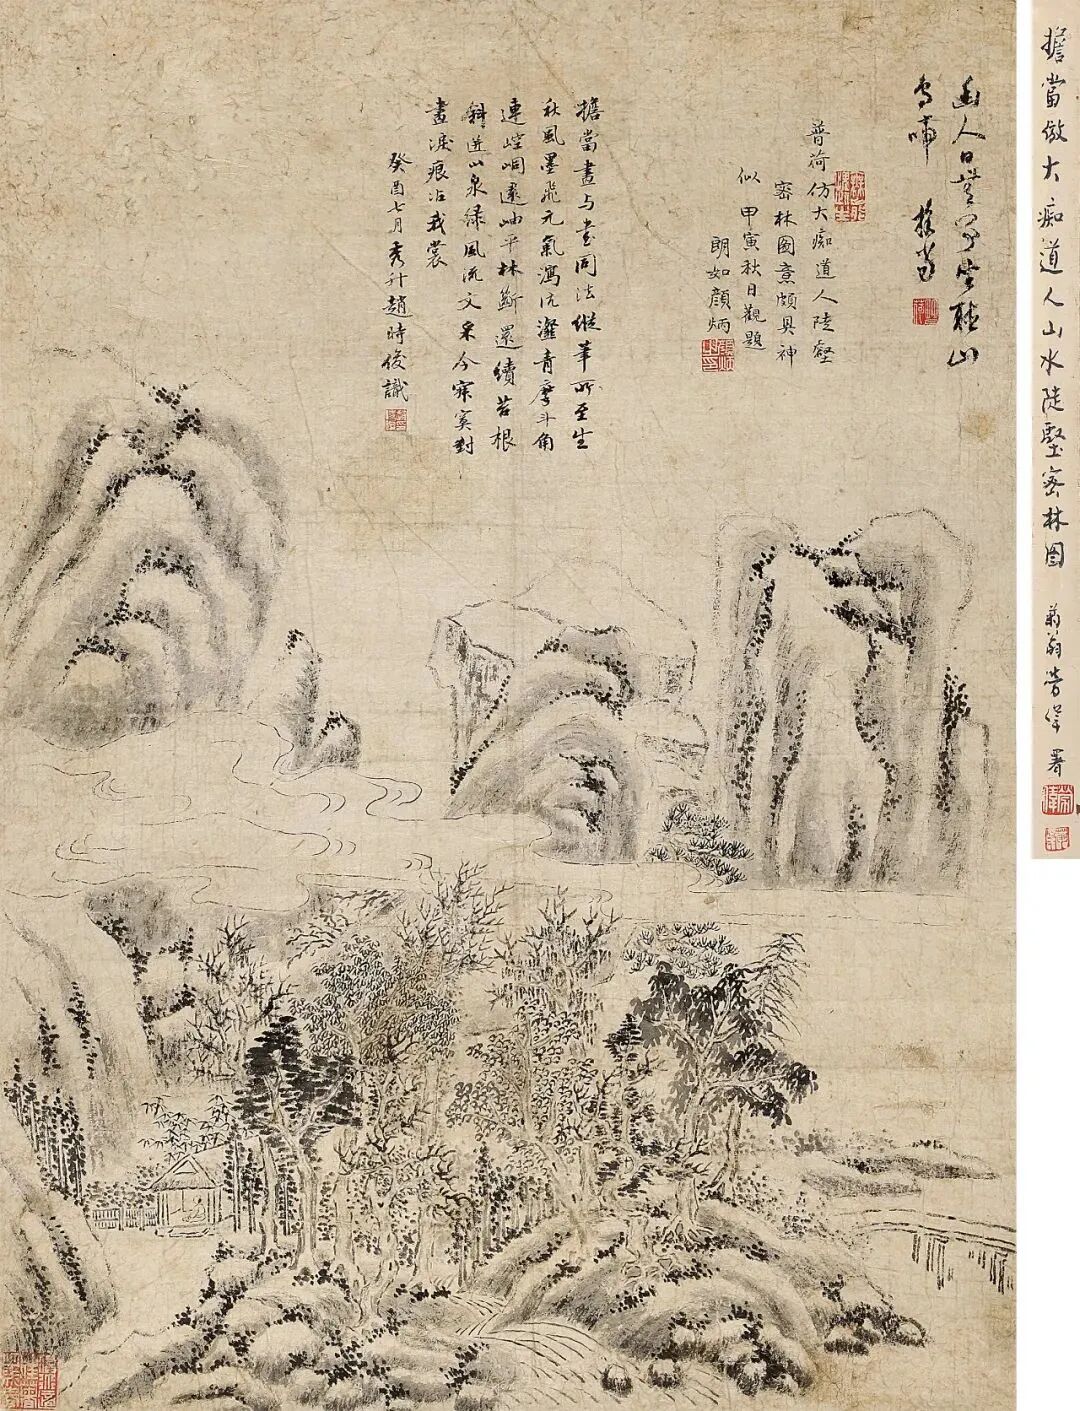 擔當倣大痴道人山水陡壑密林圖
翁萬 勞健 署
幽人日暮空坐聽山
鳥啼 擔當
普荷仿大痴道人陡壑
密林圖意頗具神
似 甲寅秋日觀題
朗如顏炳
擔當畫與書同法縱筆所至生
秋風墨飛元氣瀉沆瀣青摩斗角
連崆峒遠岫平林斷還續苔根
斜迸山泉綠風流文采今寂寞對
畫淚痕沾我裳
癸酉七月秀升趙時俊識